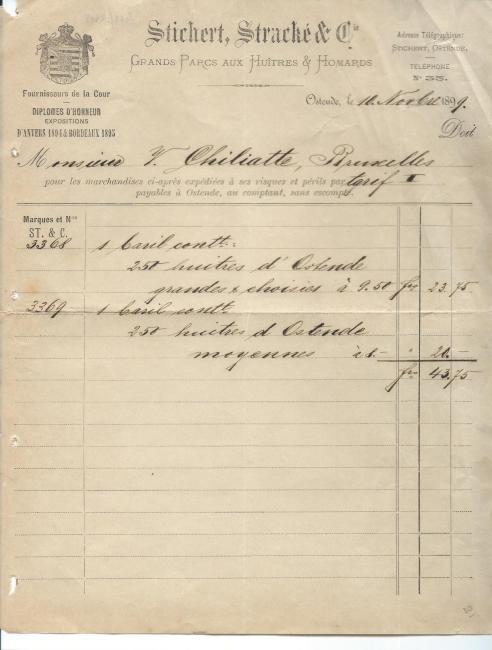 Stichert, Stracké & Cie
Grands Parcs aux Huîtres & Homards
Adresse Télégraphique:
Stichert, Ostende.
TÉLÉPHONE
N° 35.
Fournisseurs de la Cour
DIPLOMES D'HONNEUR
EXPOSITIONS
D'ANVERS 1894 & BORDEAUX 1895
Ostende, le 10 Novbre 1899.
Doit
Monsieur V. Chiliatte, Bruxelles
pour les marchandises ci-après expédiées à ses risques et périls par tarif I
payables à Ostende, au comptant, sans escompte.
Marques et Nos
ST. & C.
3368 1 Baril contt:
250 huîtres d'Ostende
grandes & choisies à 9.50 frs 23.75
3369 1 Baril contt
250 huîtres d Ostende
moyennes à 8.- " 20.-
frs 43.75